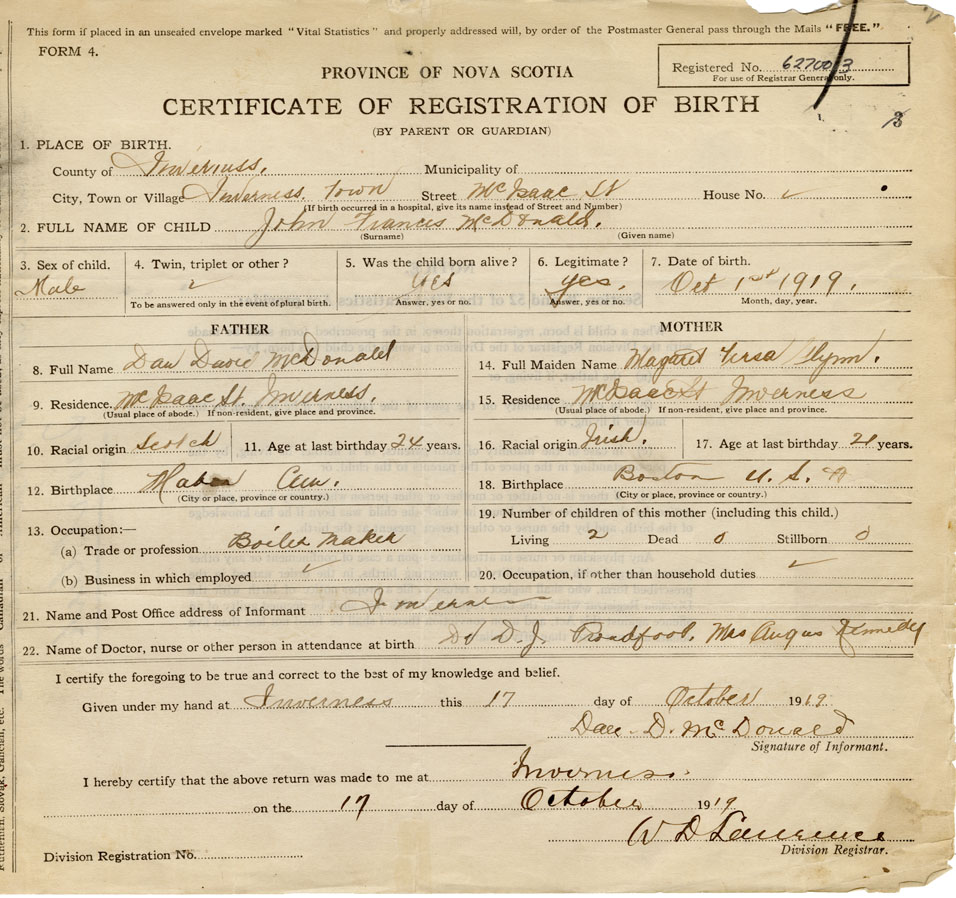 This form if placed in an unsealed envelope marked "Vital Statistics" and properly addressed will, by order of the Postmaster General pass through the Mails "FREE."
FORM 4.
Registered No. 627003
For use of Registrar General only.
PROVINCE OF NOVA SCOTIA
CERTIFICATE OF REGISTRATION OF BIRTH
(BY PARENT OR GUARDIAN)
1. PLACE OF BIRTH.
County of Inverness. Municipality of
City, Town or Village Inverness Town Street McIsaac St House No. ✓
(If birth occurred in a hospital, give its name instead of Street and Number)
2. FULL NAME OF CHILD John Francis McDonald.
(Surname) (Given name)
3. Sex of child. Male
4. Twin, triplet or other? ✓
To be answered only in the event of plural birth.
5. Was the child born alive? yes
Answer, yes or no.
6. Legitimate? yes.
Answer, yes or no.
7. Date of birth. Oct 1st 1919.
Month, day, year.
FATHER
8. Full Name Dan David McDonald
9. Residence. McIsaac St. Inverness.
(Usual place of abode.) If non-resident, give place and province.
10. Racial origin Scotch 11. Age at last birthday 24 years.
12. Birthplace Mabou
(City or place, province or country.)
13. Occupation:—
(a) Trade or profession Boiler Maker
(b) Business in which employed ✓
MOTHER
14. Full Maiden Name Magaret Glynn.
15. Residence McIsaac St Inverness
(Usual place of abode.) If non-resident, give place and province.
16. Racial origin Irish. 17. Age at last birthday 21 years.
18. Birthplace Boston U. S. A
(City or place, province or country.)
19. Number of children of this mother (including this child.)
Living 2 Dead 0 Stillborn 0
20. Occupation, if other than household duties ✓
21. Name and Post Office address of Informant Inverness
22. Name of Doctor, nurse or other person in attendance at birth Dr D. J. Proudfoot. Mrs Angus Kennedy
I certify the foregoing to be true and correct to the best of my knowledge and belief.
Given under my hand at Inverness this 17 day of October 1919
Dan. D. McDonald
Signature of Informant.
I hereby certify that the above return was made to me at Inverness.
on the 17 day of October 1919
W D Lawrence
Division Registrar.
Division Registration No.